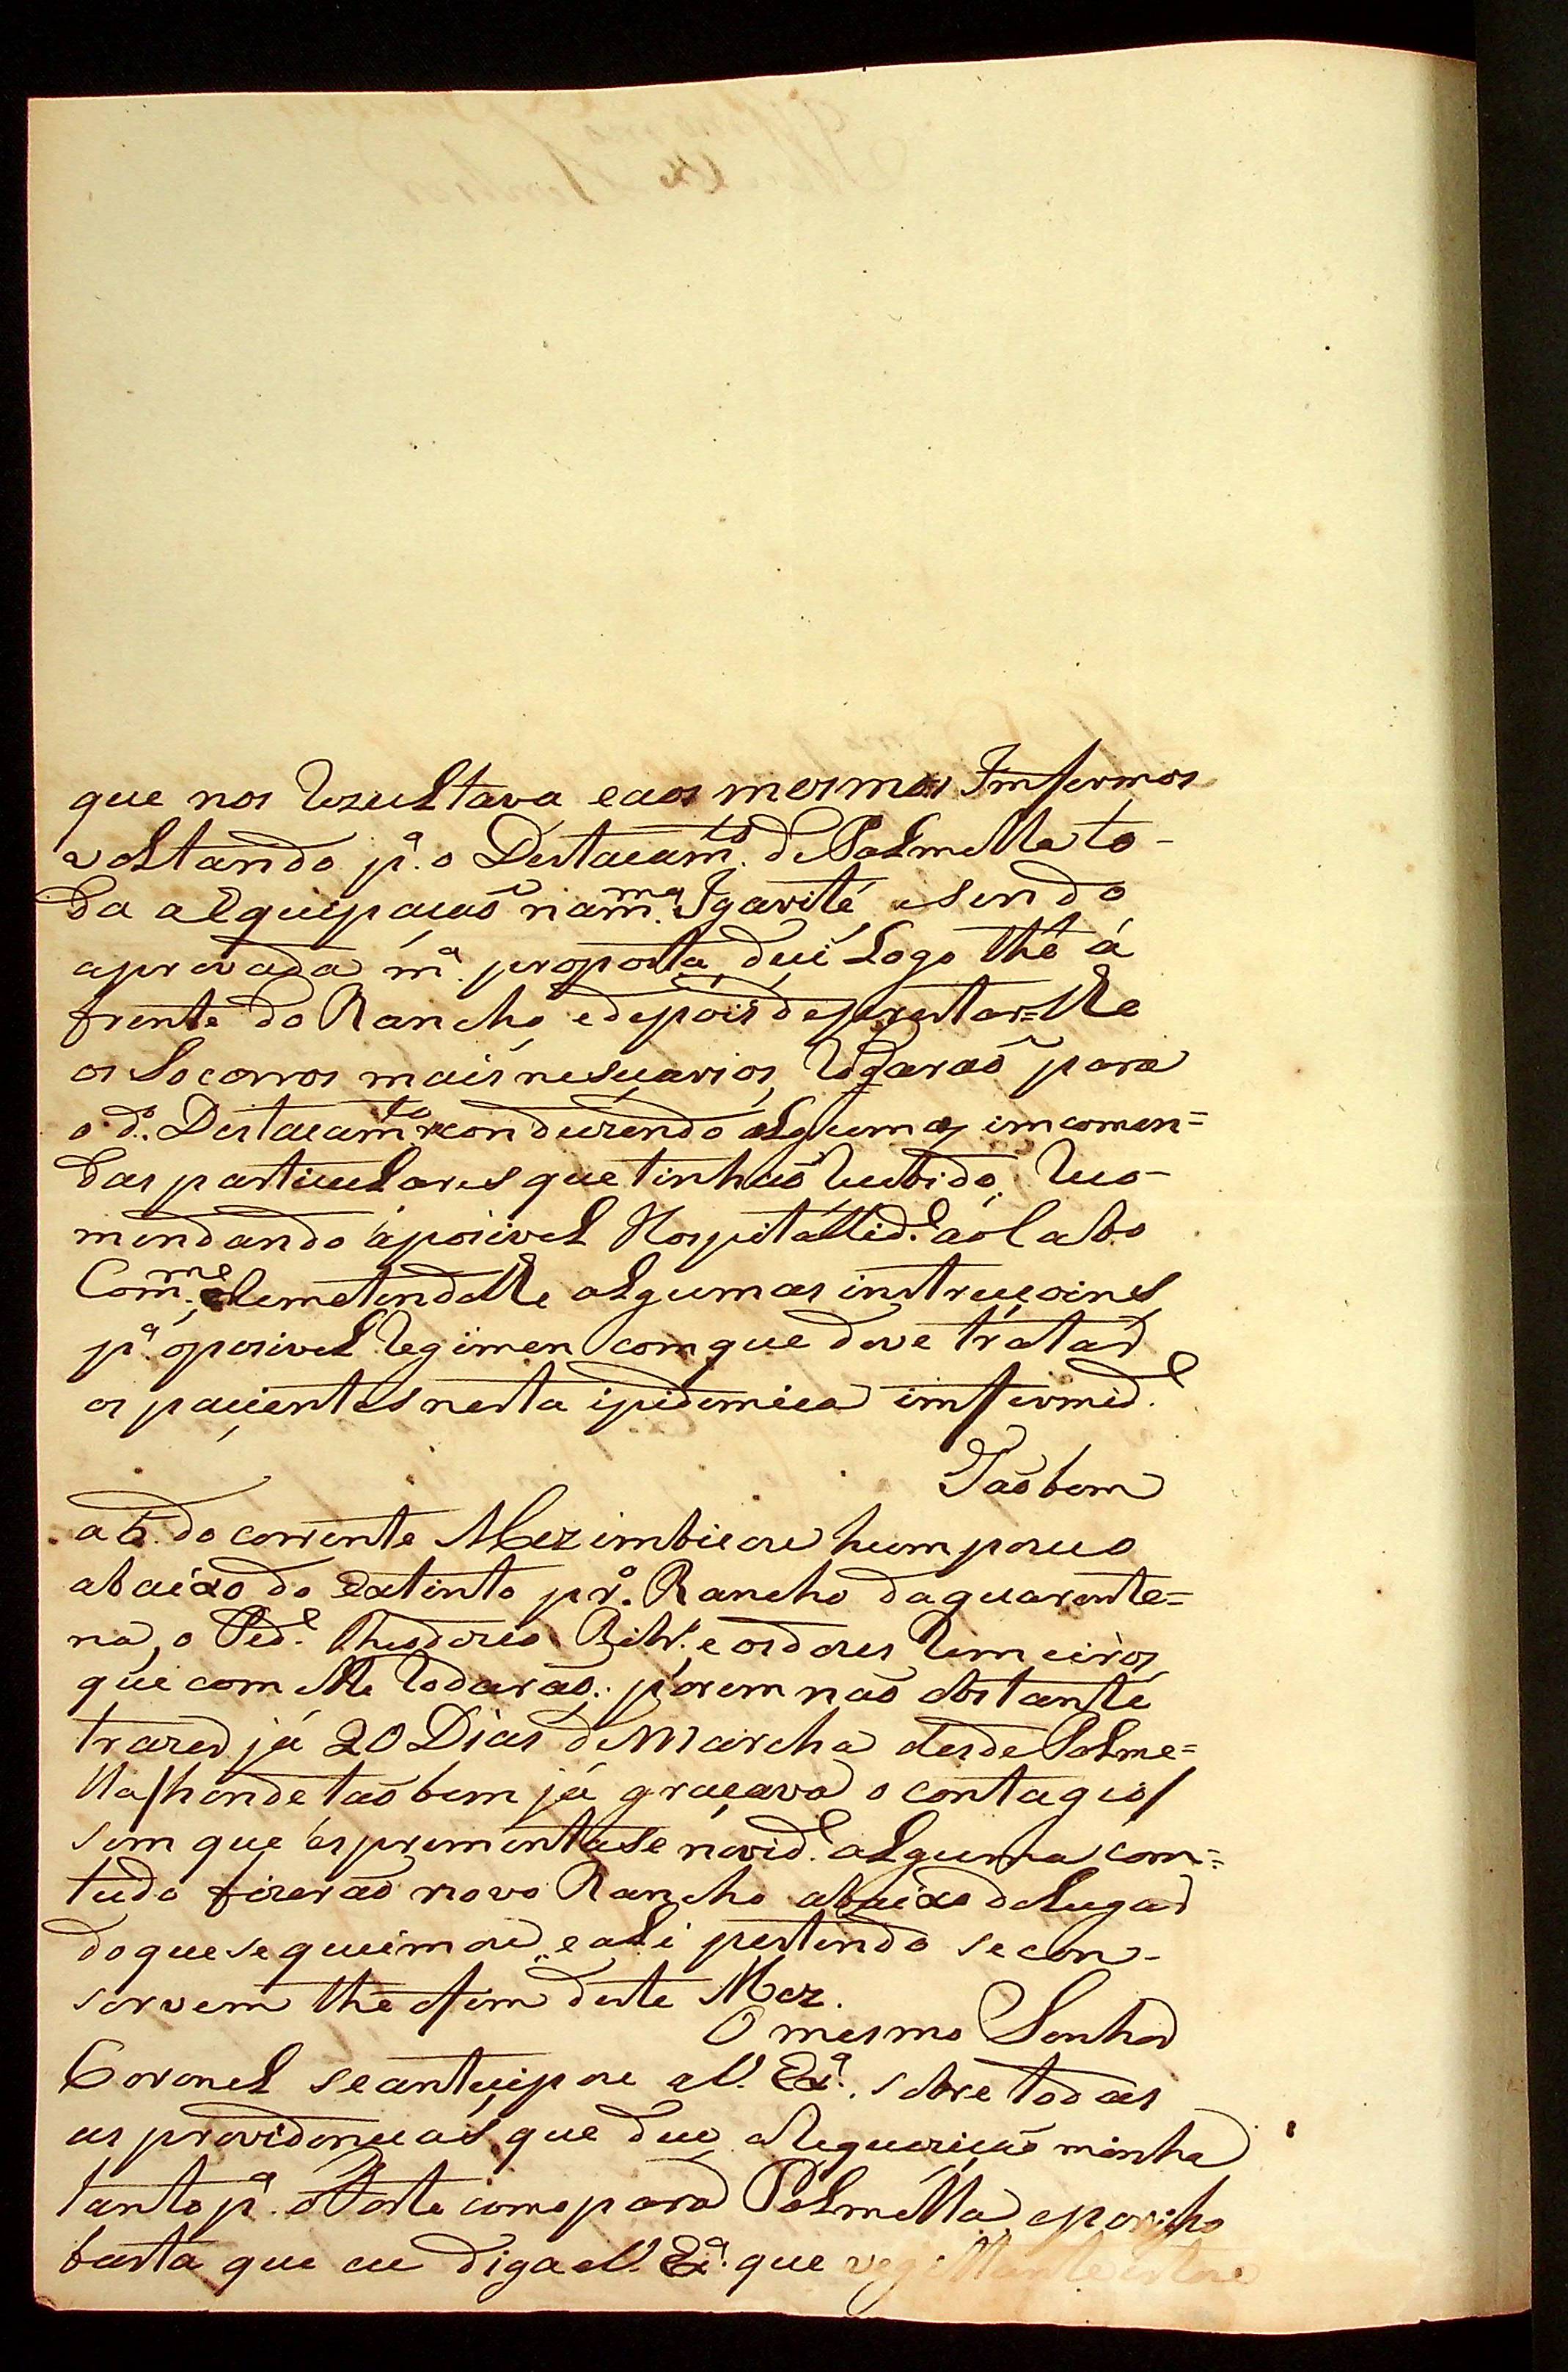 que nos rezultava e aos mesmos Imfermos
voltando pª. o Destacamto. de Palmella to-
da a Equipacaõ na mma. Igarité, e sendo
aprovada mª. proposta, dei logo thé á
frente do Rancho, e depois de prestar=lhe
os Socorros mais nesuçarios, rodaraõ para
o dº. Destacamto. conduzindo algumas imcomen=
das particulares que tinhaõ recebido, reco-
mendando a posivel Hospitallide. ao Cabo
Comme. e remetendolhe algumas instrucoines
pª. o posivel regimen com que deve tratar
os pacientes nesta ipidemica imfermide.
Taõbem
a 5. do corrente Mez imbicou hum pouco
abaixo do extinto prº. Rancho da quarente=
na, o Pede. Theodozio Ribrº. e os dous remeiros
que com elle rodaraõ: porem naõ obstante
trazer já 20 Dias de Marcha desde Palme=
lla / honde taõbem já graçava o contagio /
sem que esprementase novide. alguma, com=
tudo fizeraõ novo Rancho abaixo do lugar
do que se queimou, e ali pertendo se con-
servem thé o fim deste Mez.
O mesmo Senhor
Coronel se antecipou a V. Exª. sobre todas
as providencias que deu a requeriçaõ minha
tanto pª. o Forte como para Palmella, e por iso
basta que eu diga a V. Exª. que vegillante estou